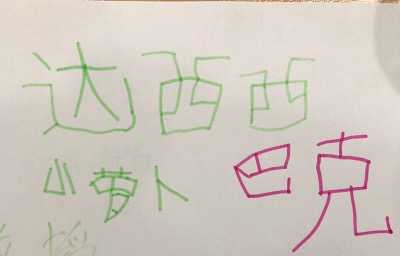 达西西
小萝卜 巴克